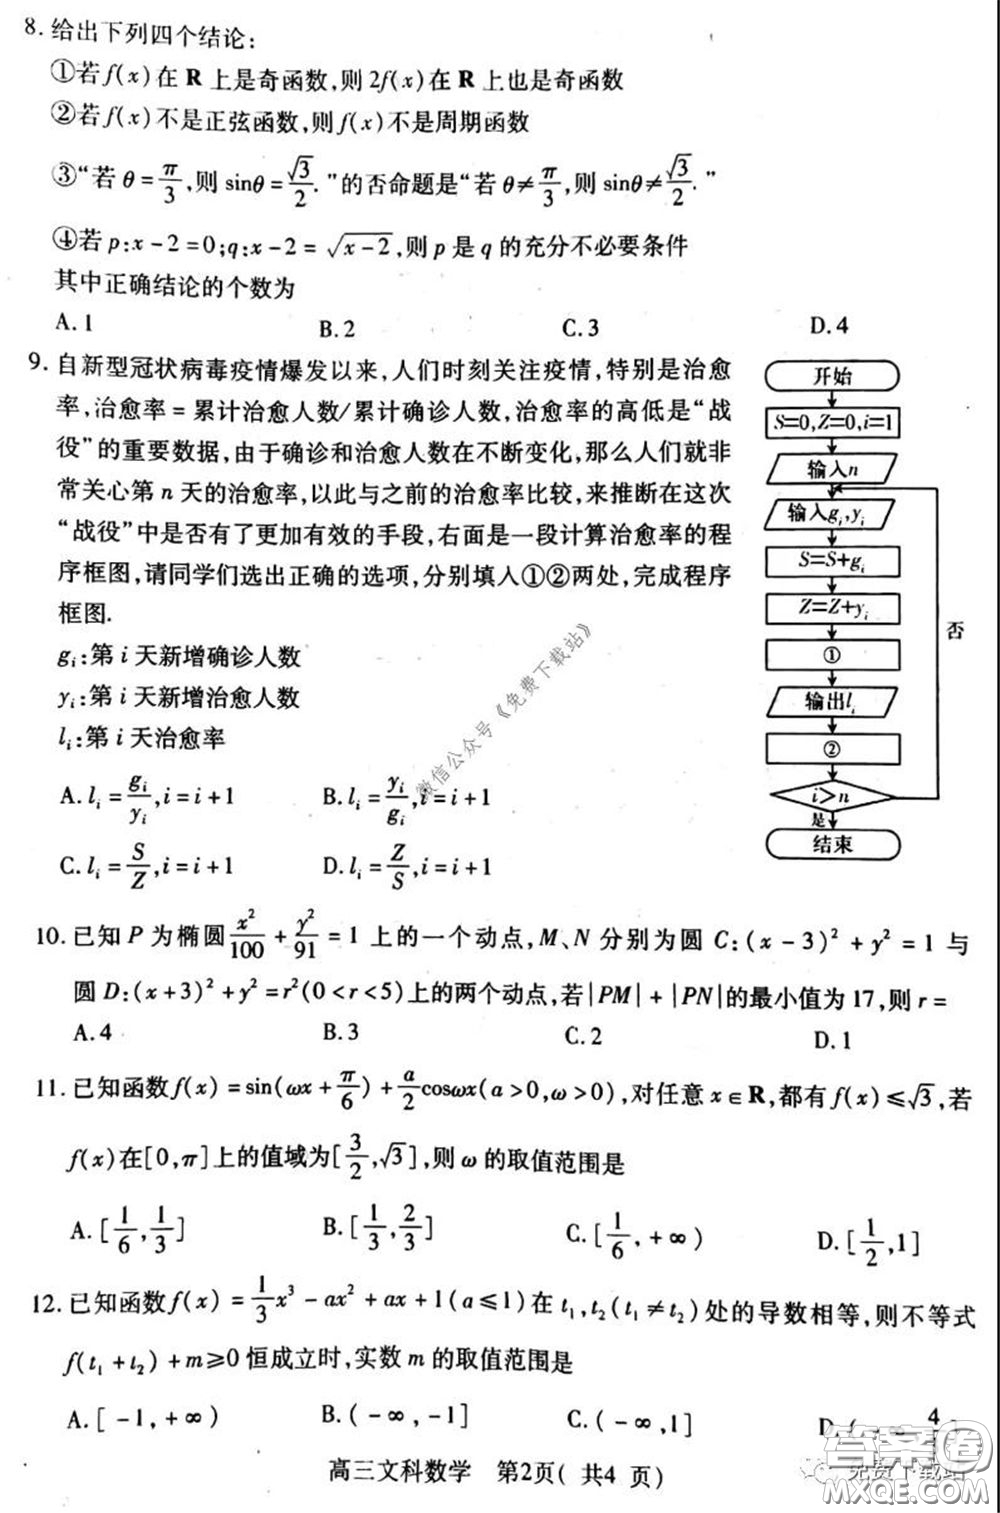 8. 给出下列四个结论:
①若 f(x) 在 R 上是奇函数,则 2f(x) 在 R 上也是奇函数
②若 f(x) 不是正弦函数,则 f(x) 不是周期函数
③“若 θ = π/3, 则 sinθ = √3/2. ”的否命题是“若 θ ≠ π/3, 则 sinθ ≠ √3/2. ”
④若 p:x - 2 = 0;q:x - 2 = √(x - 2), 则 p 是 q 的充分不必要条件
其中正确结论的个数为
A. 1 B. 2 C. 3 D. 4
9. 自新型冠状病毒疫情爆发以来,人们时刻关注疫情,特别是治愈
率,治愈率 = 累计治愈人数/累计确诊人数,治愈率的高低是“战
役”的重要数据,由于确诊和治愈人数在不断变化,那么人们就非
常关心第 n 天的治愈率,以此与之前的治愈率比较,来推断在这次
“战役”中是否有了更加有效的手段,右面是一段计算治愈率的程
序框图,请同学们选出正确的选项,分别填入①②两处,完成程序
框图.
gᵢ:第 i 天新增确诊人数
yᵢ:第 i 天新增治愈人数
lᵢ:第 i 天治愈率
A. lᵢ = gᵢ/yᵢ, i = i + 1 B. lᵢ = yᵢ/gᵢ, i = i + 1
C. lᵢ = S/Z, i = i + 1 D. lᵢ = Z/S, i = i + 1
开始
S=0,Z=0,i=1
输入n
输入gᵢ,yᵢ
S=S+gᵢ
Z=Z+yᵢ
①
输出lᵢ
②
i>n
否
是
结束
微信公众号《免费下载站》
10. 已知 P 为椭圆 x²/100 + y²/91 = 1 上的一个动点,M、N 分别为圆 C:(x - 3)² + y² = 1 与
圆 D:(x + 3)² + y² = r²(0 < r < 5)上的两个动点,若|PM| + |PN|的最小值为 17,则 r =
A. 4 B. 3 C. 2 D. 1
11. 已知函数 f(x) = sin(ωx + π/6) + a/2 cosωx(a > 0,ω > 0),对任意 x ∈ R,都有 f(x) ≤ √3,若
f(x)在[0,π]上的值域为[3/2,√3],则 ω 的取值范围是
A. [1/6,1/3] B. [1/3,2/3] C. [1/6, +∞) D. [1/2,1]
12. 已知函数 f(x) = 1/3 x³ - ax² + ax + 1(a ≤ 1)在 t₁,t₂(t₁ ≠ t₂)处的导数相等,则不等式
f(t₁ + t₂) + m ≥ 0 恒成立时,实数 m 的取值范围是
A. [-1, +∞) B. (-∞, -1] C. (-∞,1] D. (
高三文科数学 第2页( 共4 页)
免费下载站
答案圈
MXQE.COM